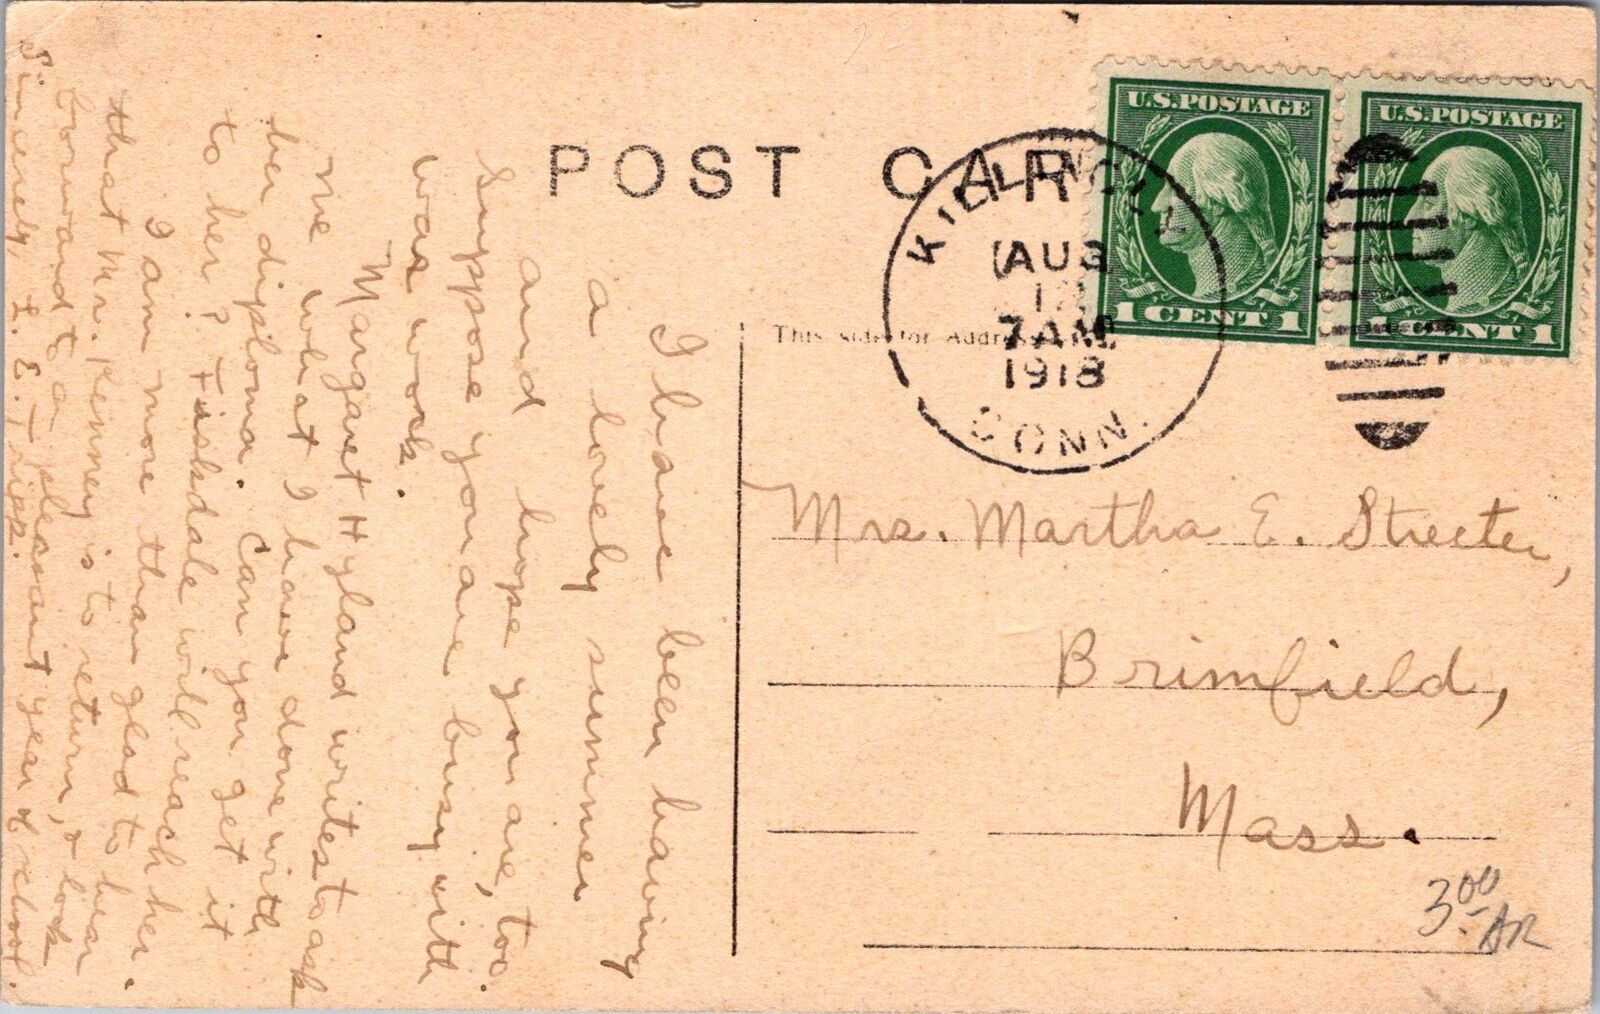 POST CARD
This side for Address
U.S. POSTAGE
1 CENT 1
U.S. POSTAGE
1 CENT 1
KILLINGLY
AUG
12
7 AM
1918
CONN.
Mrs. Martha E. Streeter,
Brimfield,
Mass.
3.00
AR
I have been having
a lovely summer
and hope you are, too.
Suppose you are busy with
war work.
Margaret Hyland writes to ask
me what I have done with
her diploma. Can you get it
to her? Fiskdale will reach her.
I am more than glad to hear
that Mr. Kenney is to return, & look
forward to a pleasant year of school.
Sincerely L. E.